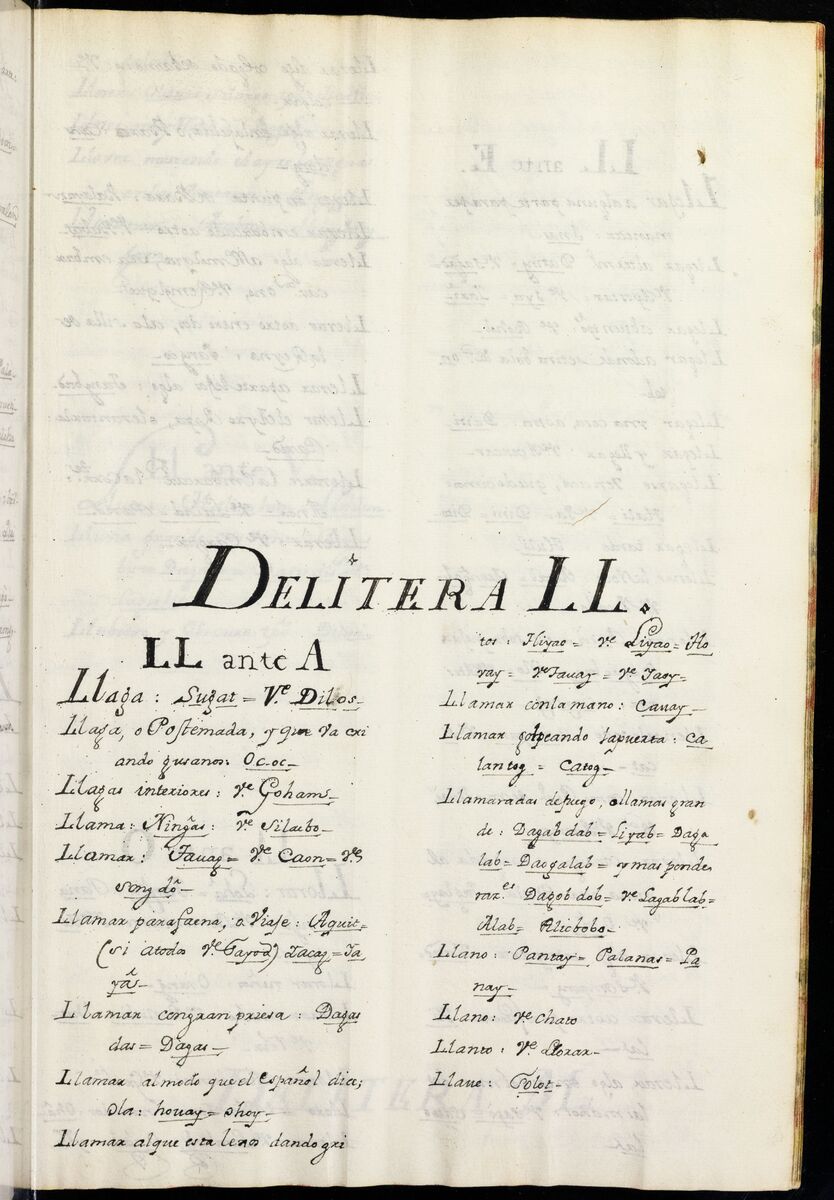 DE LITERA LL.
LL ante A
Llaga: Sugat = V.e Dilos-
Llaga, o Postemada, y que va cri
ando gusanos: Oc-oc-
Llagas interiores: v.e Gohams-
Llama: Ningas: v.e Silacbo-
Llamar: Tauag= v.e Caon= v.e
Songdo-
Llamar para faena, o Viaje: Aquit=
(si atodos v.e Tayod) Lacag= Ta
yas-
Llamar congran priesa: Dagas
das= Dagas-
Llamar almodo que el español dice;
ola: houay= ohoy-
Llamar alque esta lexos dando gri
tos: Hiyao= v.e Liyao= Ho
ray= v.e Tauag= v.e Taoy-
Llamar conlamano: Cauay-
Llamar golpeando lapuerta: Ca
lantog= Catog-
Llamaradas defuego, ollamas gran
de: Dagabdab= Liyab= Daga
lab= Daogalab= ymas ponde
raz.es Dagobdob= v.e Lagablab=
Alab= Alicbobo-
Llano: Pantay= Palanas= Pa
nay-
Llano: v.e Chato
Llanto: v.e Llorar-
Llaue: Tolot-